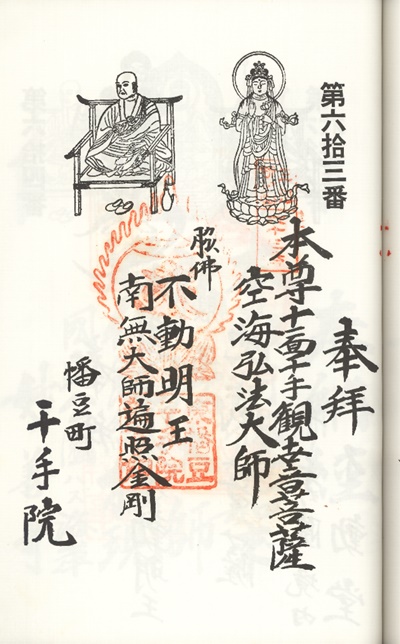 第六拾三番
奉拝
本尊十一面千手観世音菩薩
空海弘法大師
脇佛
不動明王
南無大師遍照金剛
幡豆町
千手院